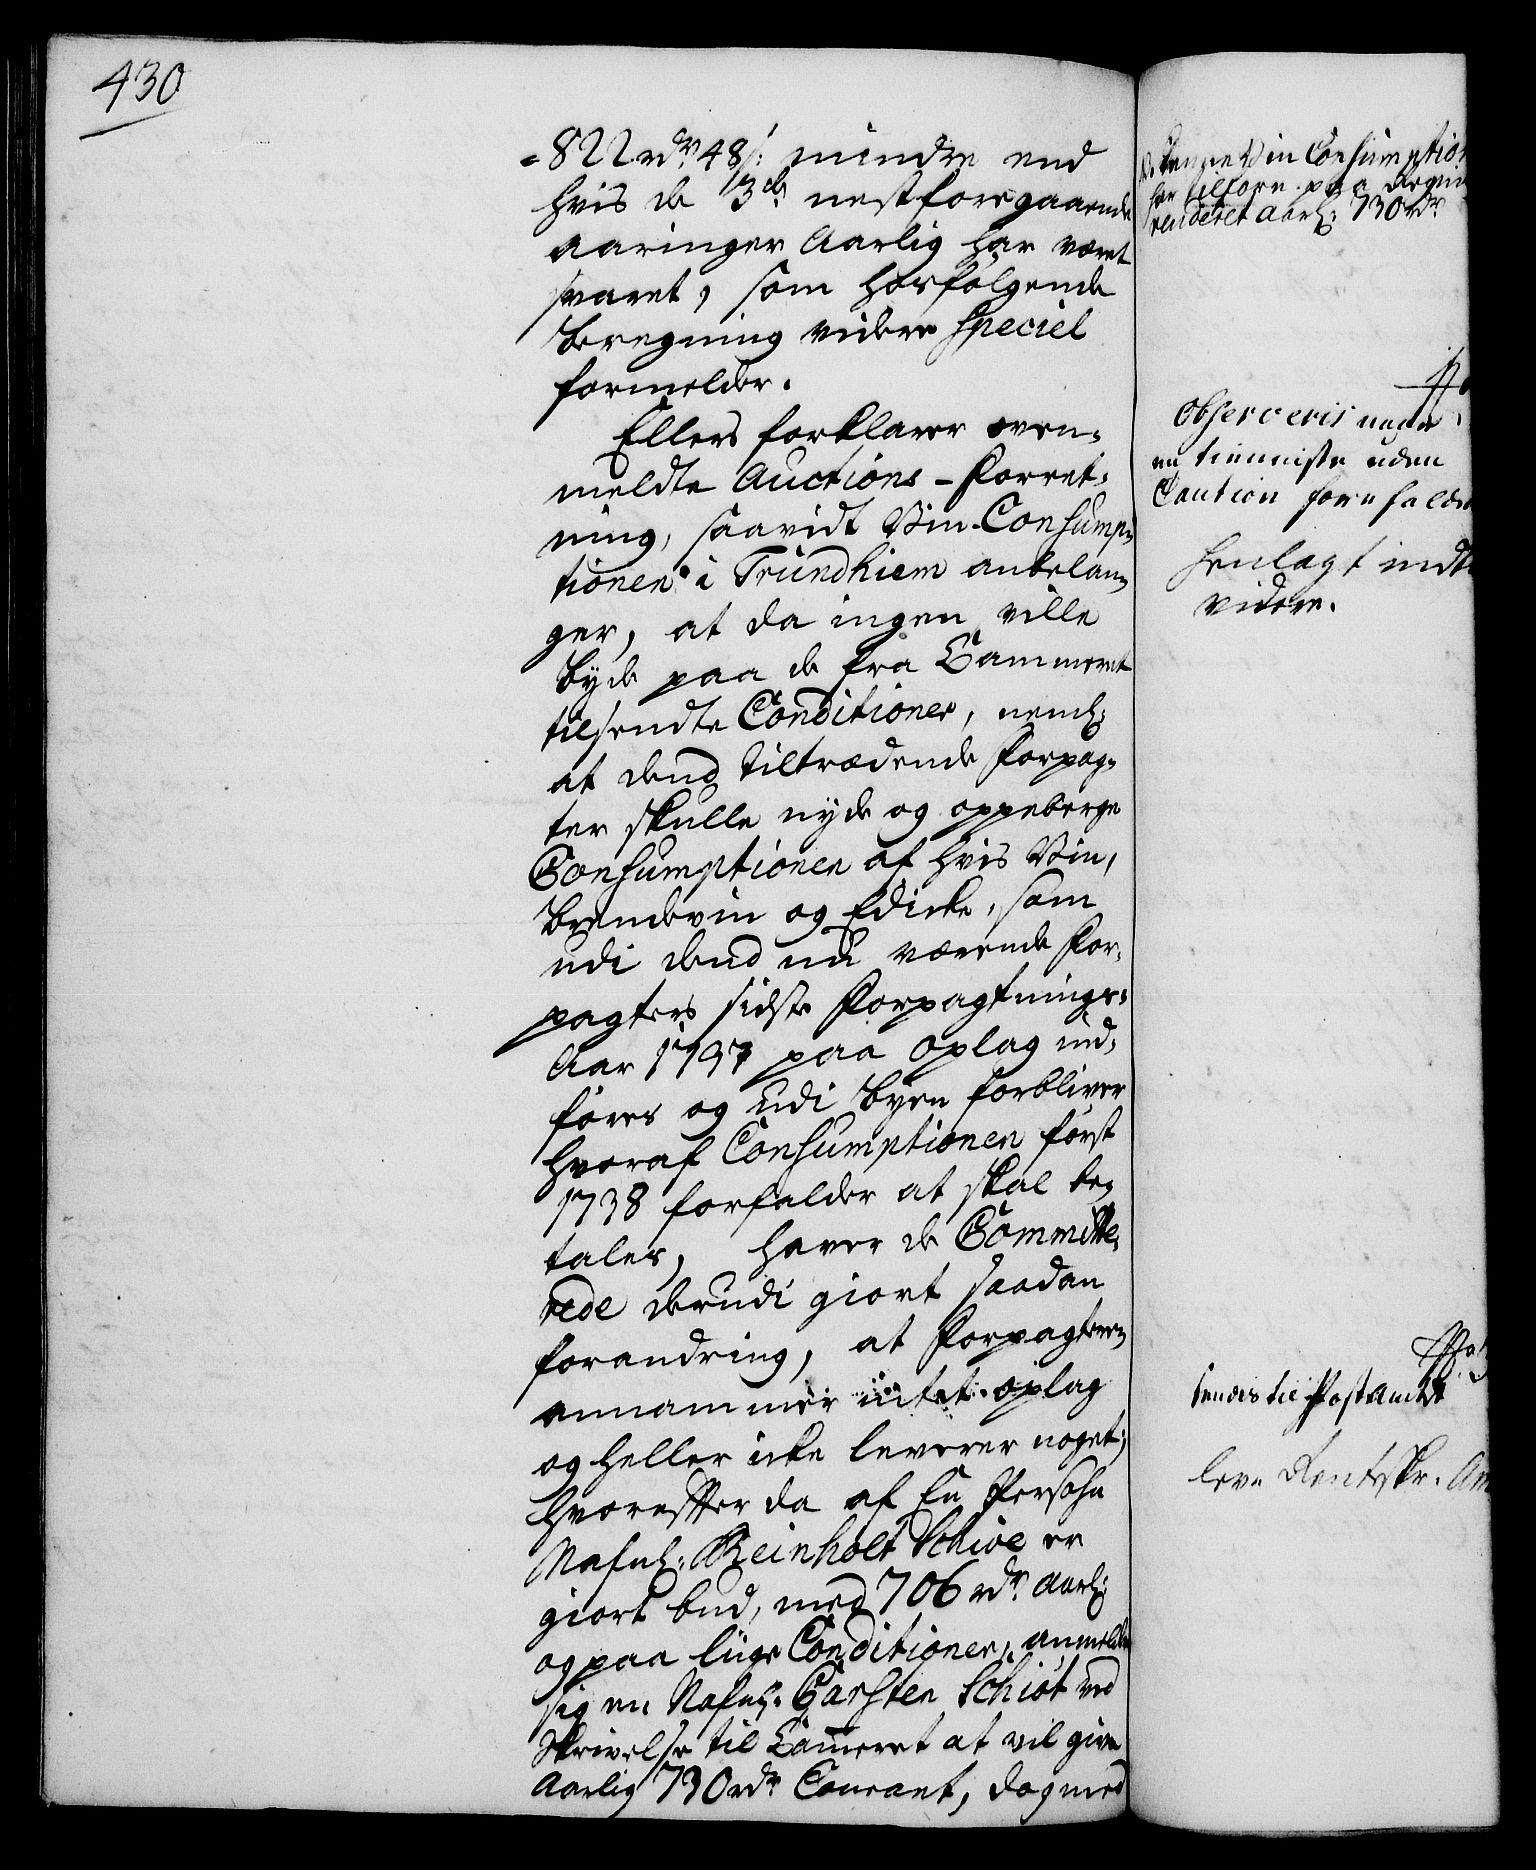 430
822 rdr 48 s: mindre end
hvis de 3de nestforegaaende
aaringer Aarlig har været
svaret, som hosfølgende
Beregning videre Speciel
formelder.
Ellers forklarer oven-
meldte Auctions-Forret-
ning, saavidt Vin-Consump-
tionen i Trundhiem anbelan-
ger, at da ingen ville
byde paa de fra Cammeret
tilsendte Conditioner, neml:
at dend tiltrædende Forpag-
ter skulle nyde og oppeberge
Consumptionen af hvis Viin,
Brendeviin og Edicke, som
udi dend nu værende For-
pagters sidste Forpagtnings-
Aar 1737 paa Oplag ind-
føres og udi Byen forbliver
hvoraf Consumptionen først
1738 forfalder at skal be-
tales, haver de Committe-
rede derudi giort saadan
forandring, at Forpagteren
annammer intet oplag
og heller icke leverer noget;
hvorefter da af En Persohn
Nafnl: Reinholt Schive er
giort bud, med 706 rdr Aarl:
og paa liige Conditioner, anmelder
sig en Nafnl: Carsten Schiøt ved
Skrivelse til Cammeret at vil give
Aarlig 730 rdr Courant, dog med
Denne Viin Consumption
her tilforn paa
renderet aarl: 730 rdr
Observeris
uden
Caution
henlagt indt
videre.
sendes til Post Amtet
leve Rentskr.